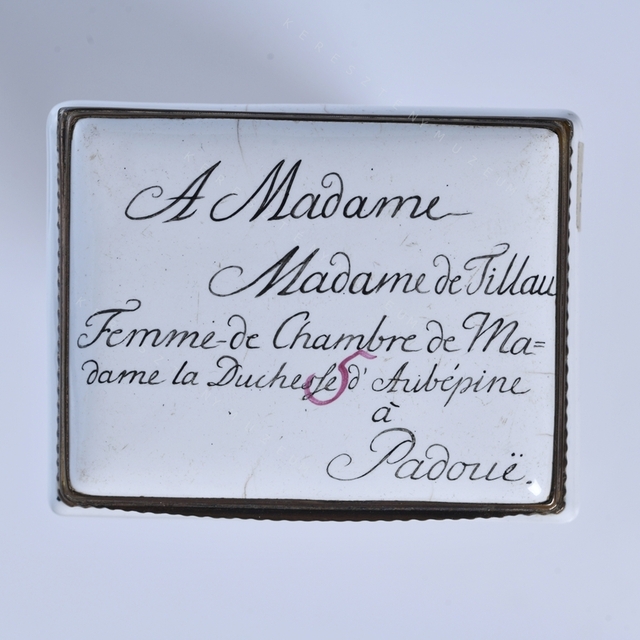 A Madame
Madame de Tillau
Femme de Chambre de Ma=
dame la Duchesse d' Aubépine
5
à
Padouë.